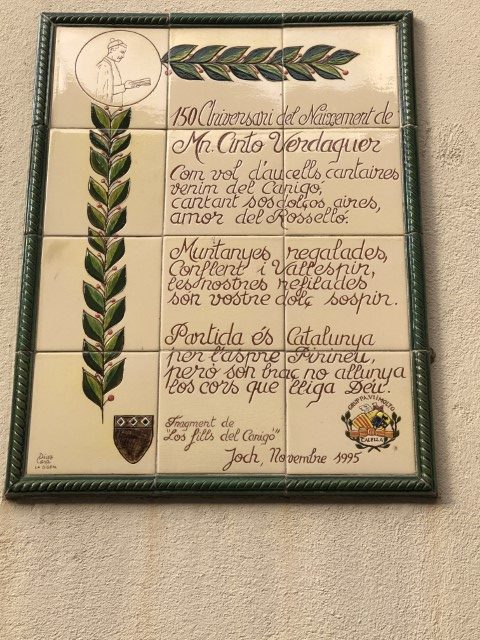 150 Aniversari del Naixement de
Mn. Cinto Verdaguer
Com vol d'aucells cantaires
venim del Canigó,
cantant sos dolços aires,
amor del Rosselló.
Muntanyes regalades,
Conflent i Vallespir,
les nostres refilades
son vostre dolç sospir.
Partida és Catalunya
per l'aspre Pirineu,
però son braç no allunya
los cors que lliga Deu.
Fragment de
"Los fills del Canigó"
Joch, Novembre 1995
LA BISBAL
CALELLA